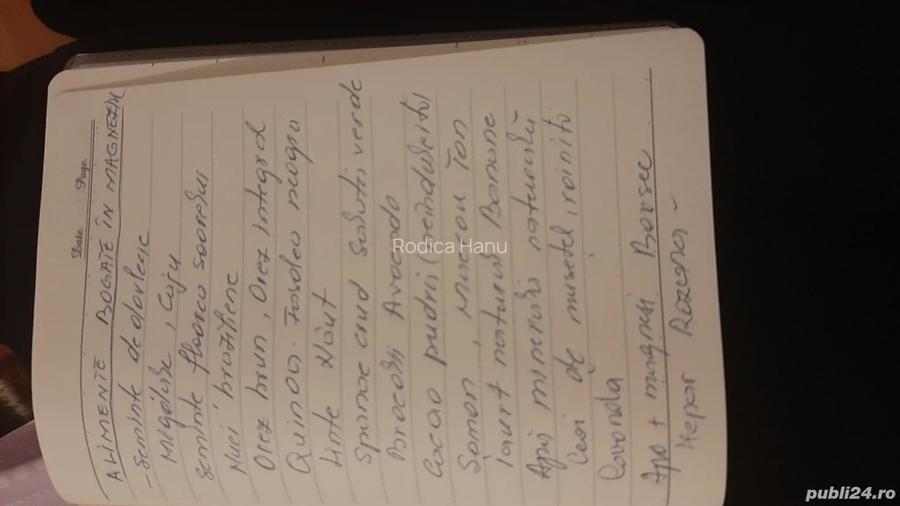 Date. Page.
ALIMENTE BOGATE ÎN MAGNEZIU
- Seminte de dovleac
Migdale, Caju
Seminte floarea soarelui
Nuci braziliene
Orez brun, Orez integral
Quinoa Fasolea neagra
Linte Năut
Spanac crud Salata verde
Broccoli Avocado
Cacao pudră (neîndulcită)
Somon, macrou ton
Iaurt natural Banane
Apă minerală naturală
Ceai de musetel, roiniță
Lavandă
Apă + magneziu Borsec
Hepar
Rodica Hanu
publi24.ro